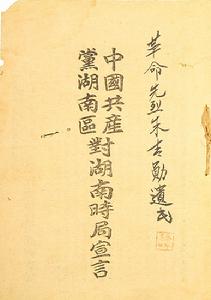 革命先烈朱吉勳遺或
中國共産
黨湖南區對湖南時局宣言